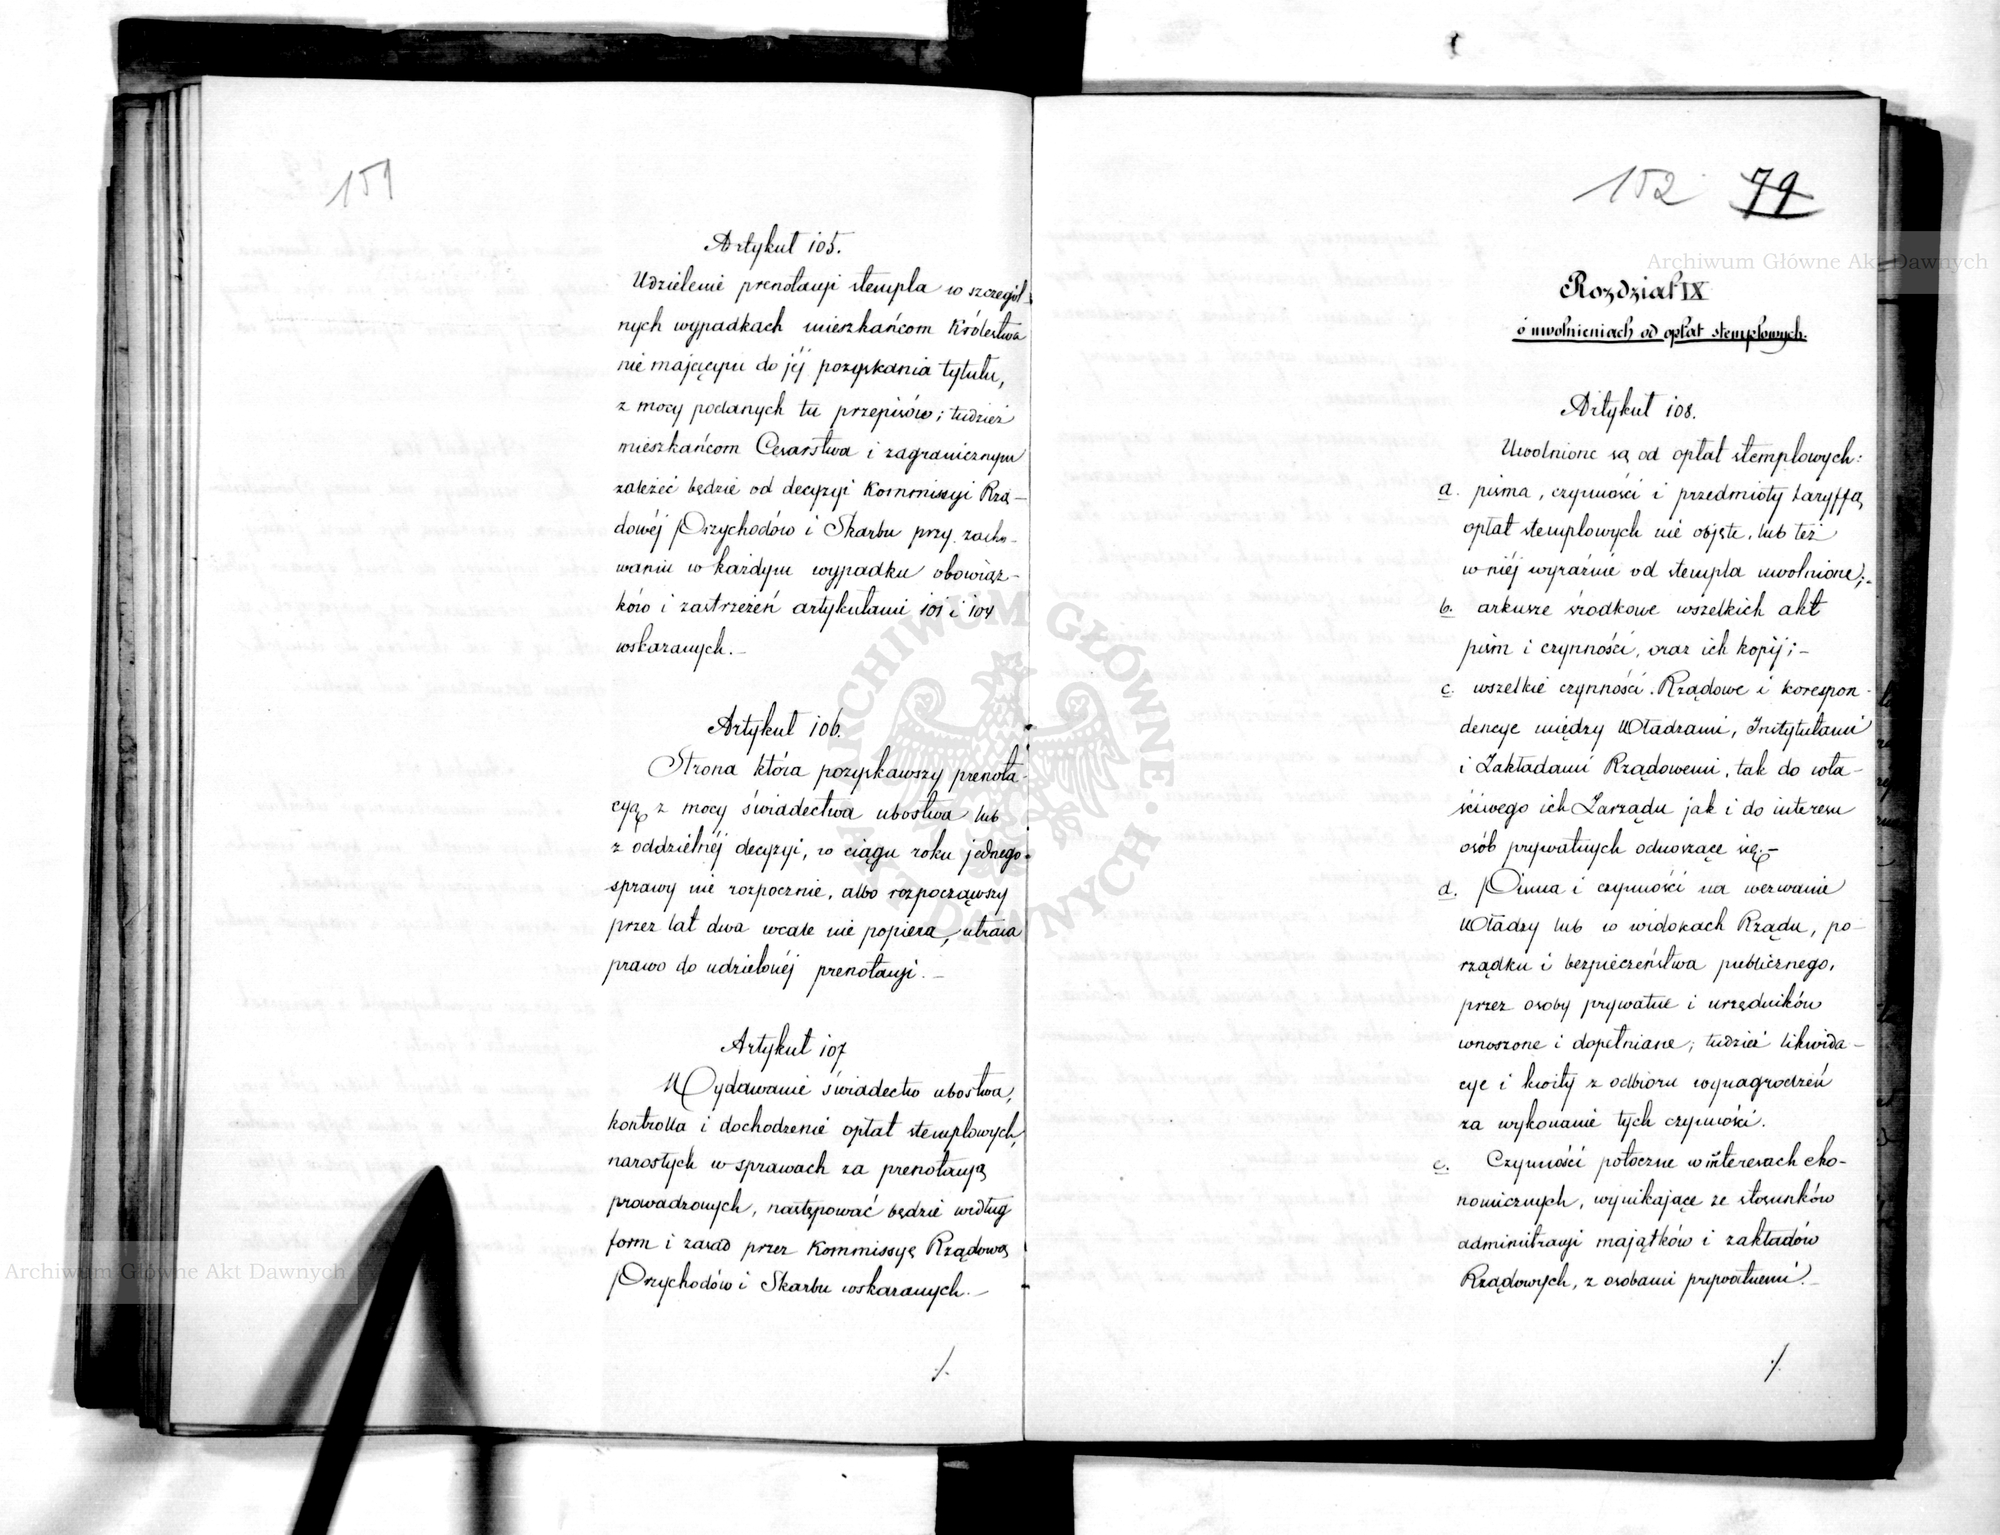 151
Artykuł 105.
Udzielenie prenotacyi stempla w szczegól-
nych wypadkach mieszkańcom Królestwa
nie mającym do jéj pozyskania tytułu,
z mocy podanych tu przepisów; tudzież
mieszkańcom Cesarstwa i zagranicznym
zależeć będzie od decyzyi Kommissyi Rzą-
dowéj Przychodów i Skarbu przy zacho-
waniu w każdym wypadku obowiąz-
ków i zastrzeżeń artykułami 101 i 104
wskazanych.—
Artykuł 106.
Strona która pozyskawszy prenota-
cyą z mocy świadectwa ubostwa lub
z oddzielnéj decyzyi, w ciągu roku jednego
sprawy nie rozpocznie, albo rozpocząwszy
przez lat dwa wcale nie popiera, utraca
prawo do udzielonéj prenotacyi.—
Artykuł 107
Wydawanie świadectw ubostwa,
kontrolla i dochodzenie opłat stemplowych,
narosłych w sprawach za prenotacyą
prowadzonych, następować będzie według
form i zasad przez Kommissyę Rządową
Przychodów i Skarbu wskazanych.—
./.
152 79
Rozdział IX
o uwolnieniach od opłat stemplowych.
Artykuł 108.
Uwolnione są od opłat stemplowych:
a. pisma, czynności i przedmioty taryffą
opłat stemplowych nie objęte, lub też
w niéj wyraźnie od stempla uwolnione;—
b. arkusze środkowe wszelkich akt
pism i czynności, oraz ich kopij;—
c. wszelkie czynności Rządowe i korespon-
dencye między Władzami, Instytutami
i Zakładami Rządowemi, tak do wła-
ściwego ich Zarządu jak i do interesu
osób prywatnych odnoszące się.—
d. Pisma i czynności na wezwanie
Władzy lub w widokach Rządu, po-
rządku i bezpieczeństwa publicznego,
przez osoby prywatne i urzędników
wnoszone i dopełniane; tudzież likwida-
cye i kwity z odbioru wynagrodzeń
za wykonanie tych czynności.
e. Czynności potoczne w interesach eko-
nomicznych, wynikające ze stosunków
administracyi majątków i zakładów
Rządowych, z osobami prywatnemi.—
./.
Archiwum Główne Akt Dawnych
Archiwum Główne Akt Dawnych
ARCHIWUM GŁÓWNE · AKT DAWNYCH ·